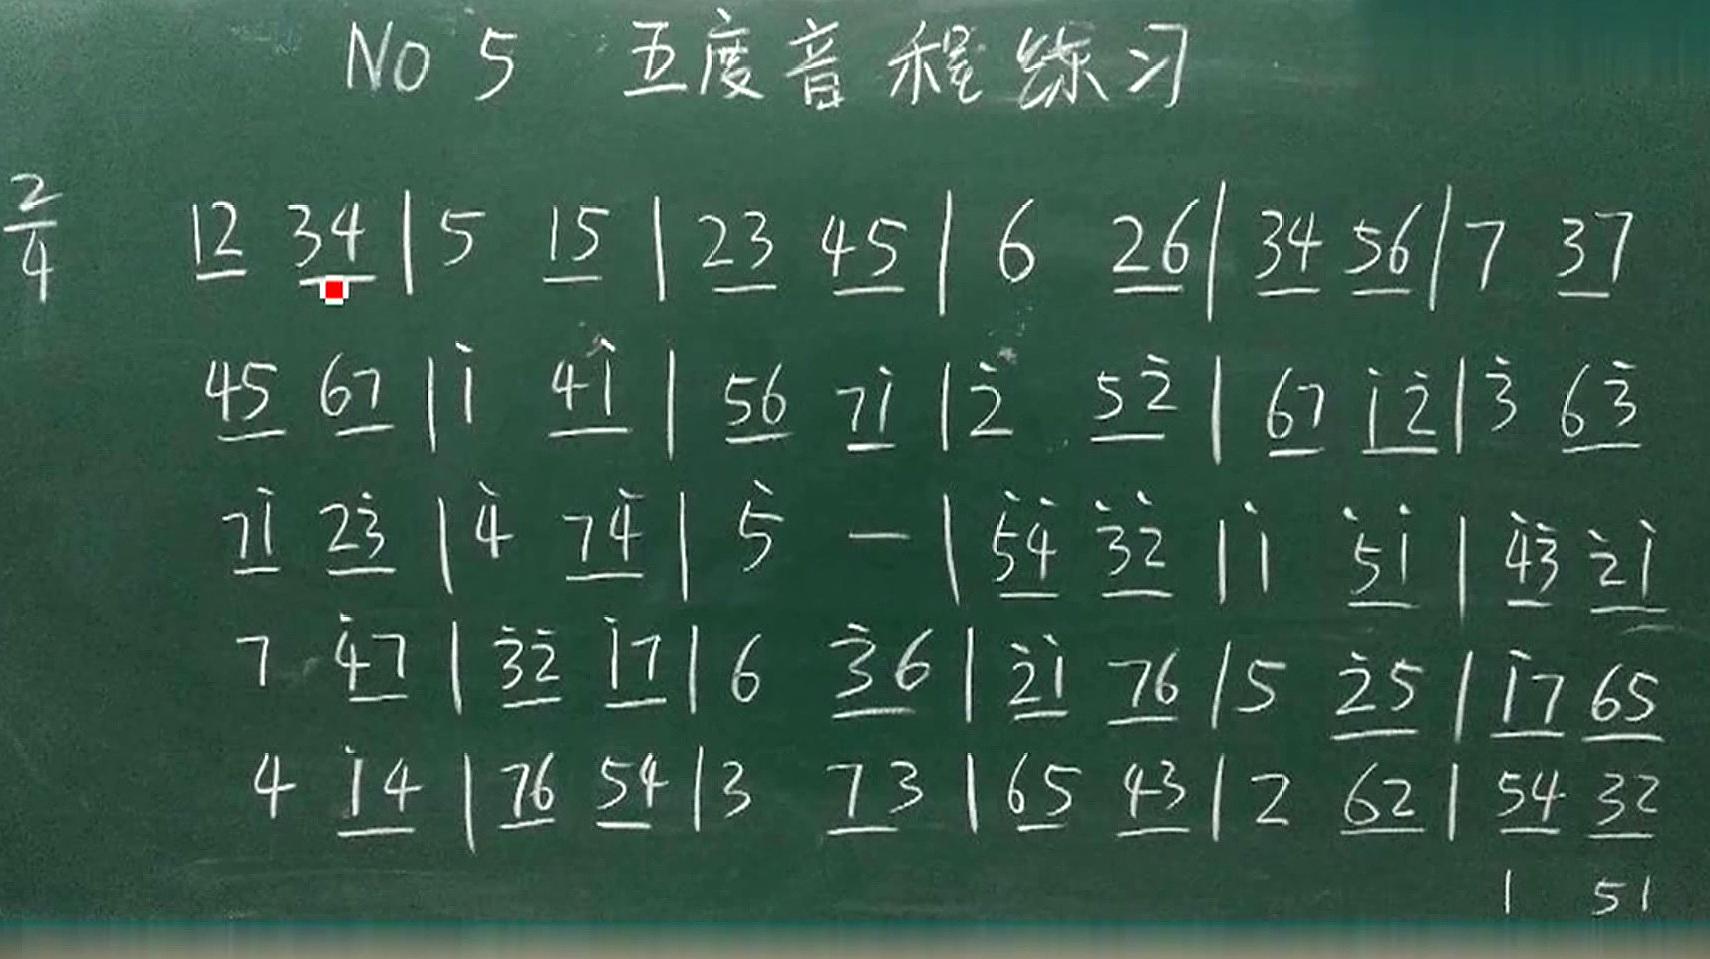 No 5 五度音程练习
2/4 12 34 | 5 15 | 23 45 | 6 26 | 34 56 | 7 37
45 67 | 1̇ 41̇ | 56 71̇ | 2̇ 52̇ | 67 1̇2̇ | 3̇ 63̇
71̇ 2̇3̇ | 4̇ 74̇ | 5̇ — | 5̇4̇ 3̇2̇ | 1̇ 5̇1̇ | 4̇3̇ 2̇1̇
7 4̇7 | 3̇2̇ 1̇7 | 6 3̇6 | 2̇1̇ 76 | 5 2̇5 | 1̇7 65
4 1̇4 | 76 54 | 3 73 | 65 43 | 2 62 | 54 32
1 51